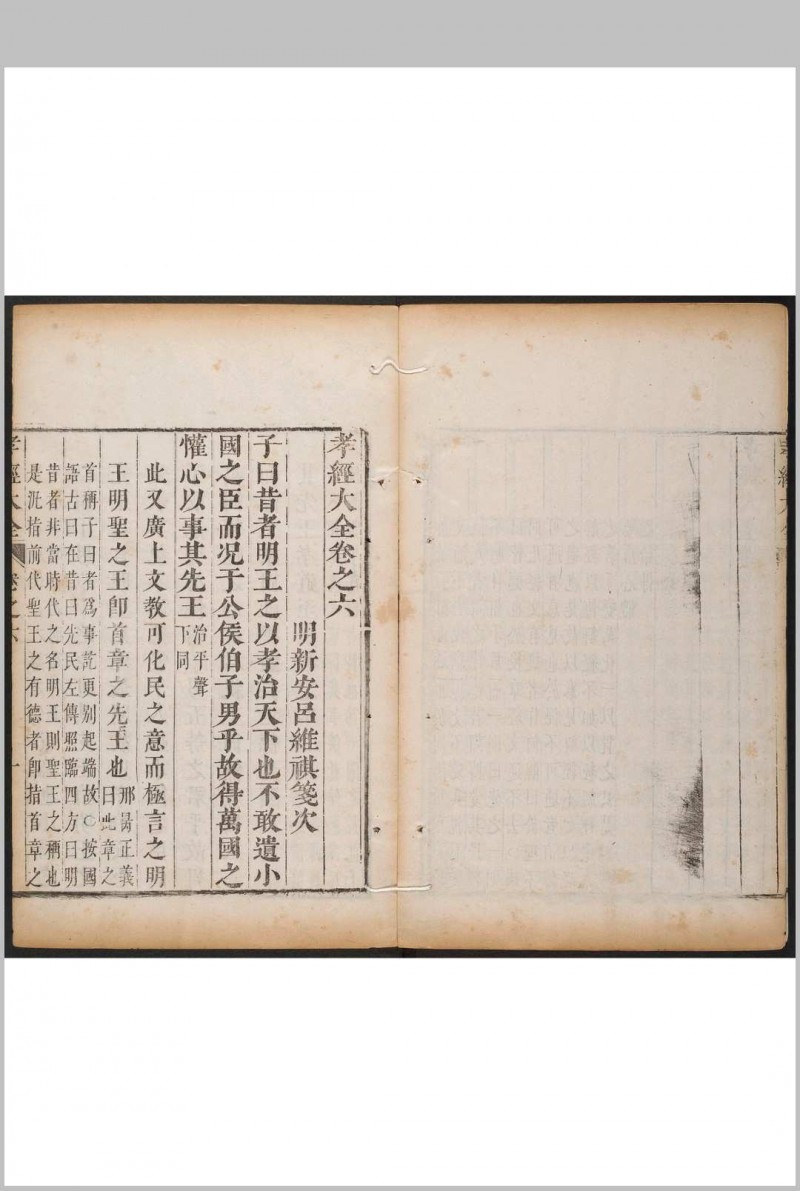 孝經大全卷之六
明新安呂維祺箋次
子曰昔者明王之以孝治天下也不敢遺小
國之臣而況于公侯伯子男乎故得萬國之
懽心以事其先王治平聲
下同
此又廣上文教可化民之意而極言之明
王明聖之王卽首章之先王也邢昺正義
曰此章之
首稱子曰者爲事訖更別起端故○按國
語古曰在昔曰先民左傳照臨四方曰明
昔者非當時代之名明王則聖王之稱也
是汎指前代聖王之有德者卽指首章之
孝經大全 卷之六 一